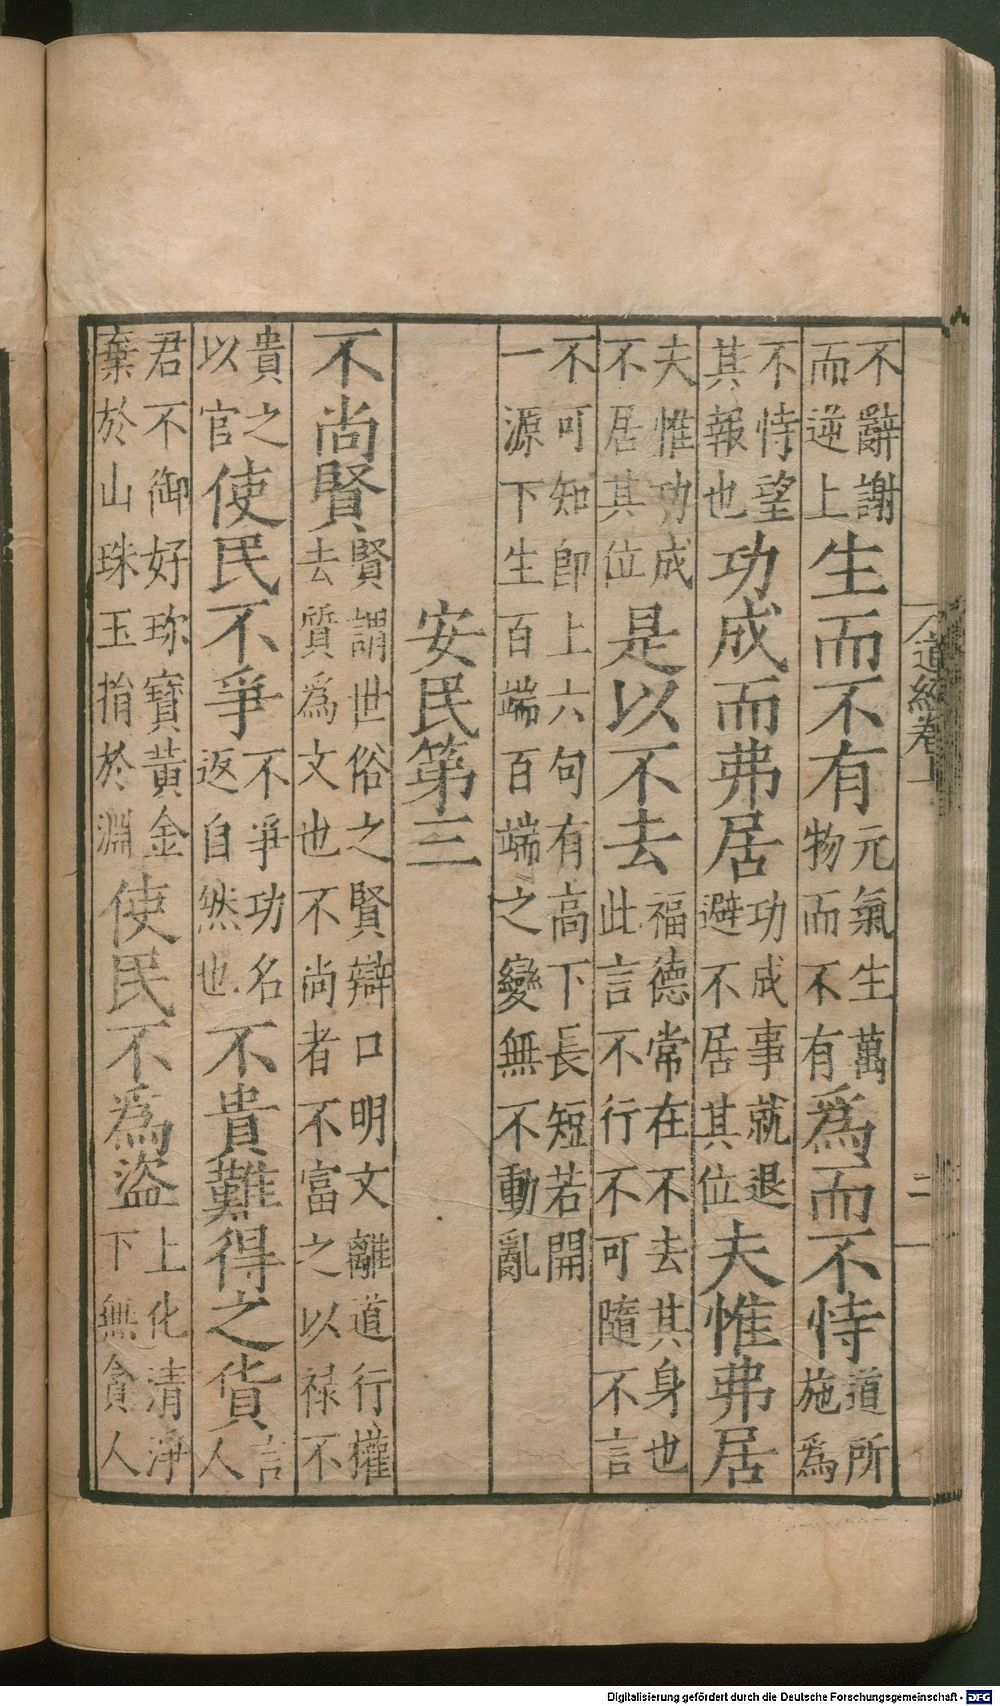 道經卷上
二
不辭謝而逆上生而不有元氣生萬物而不有爲而不恃道所施爲
不恃望其報也功成而弗居功成事就退避不居其位夫惟弗居
夫惟功成不居其位是以不去福德常在不去其身也此言不行不可隨不言
不可知卽上六句有高下長短若開一源下生百端百端之變無不動亂
安民第三
不尚賢賢謂世俗之賢辯口明文離道行權去質爲文也不尚者不富之以禄不
貴之以官使民不爭不爭功名返自然也不貴難得之貨言人
君不御好珎寶黃金棄於山珠玉捐於淵使民不爲盜上化清淨下無貪人
Digitalisierung gefördert durch die Deutsche Forschungsgemeinschaft - DFG